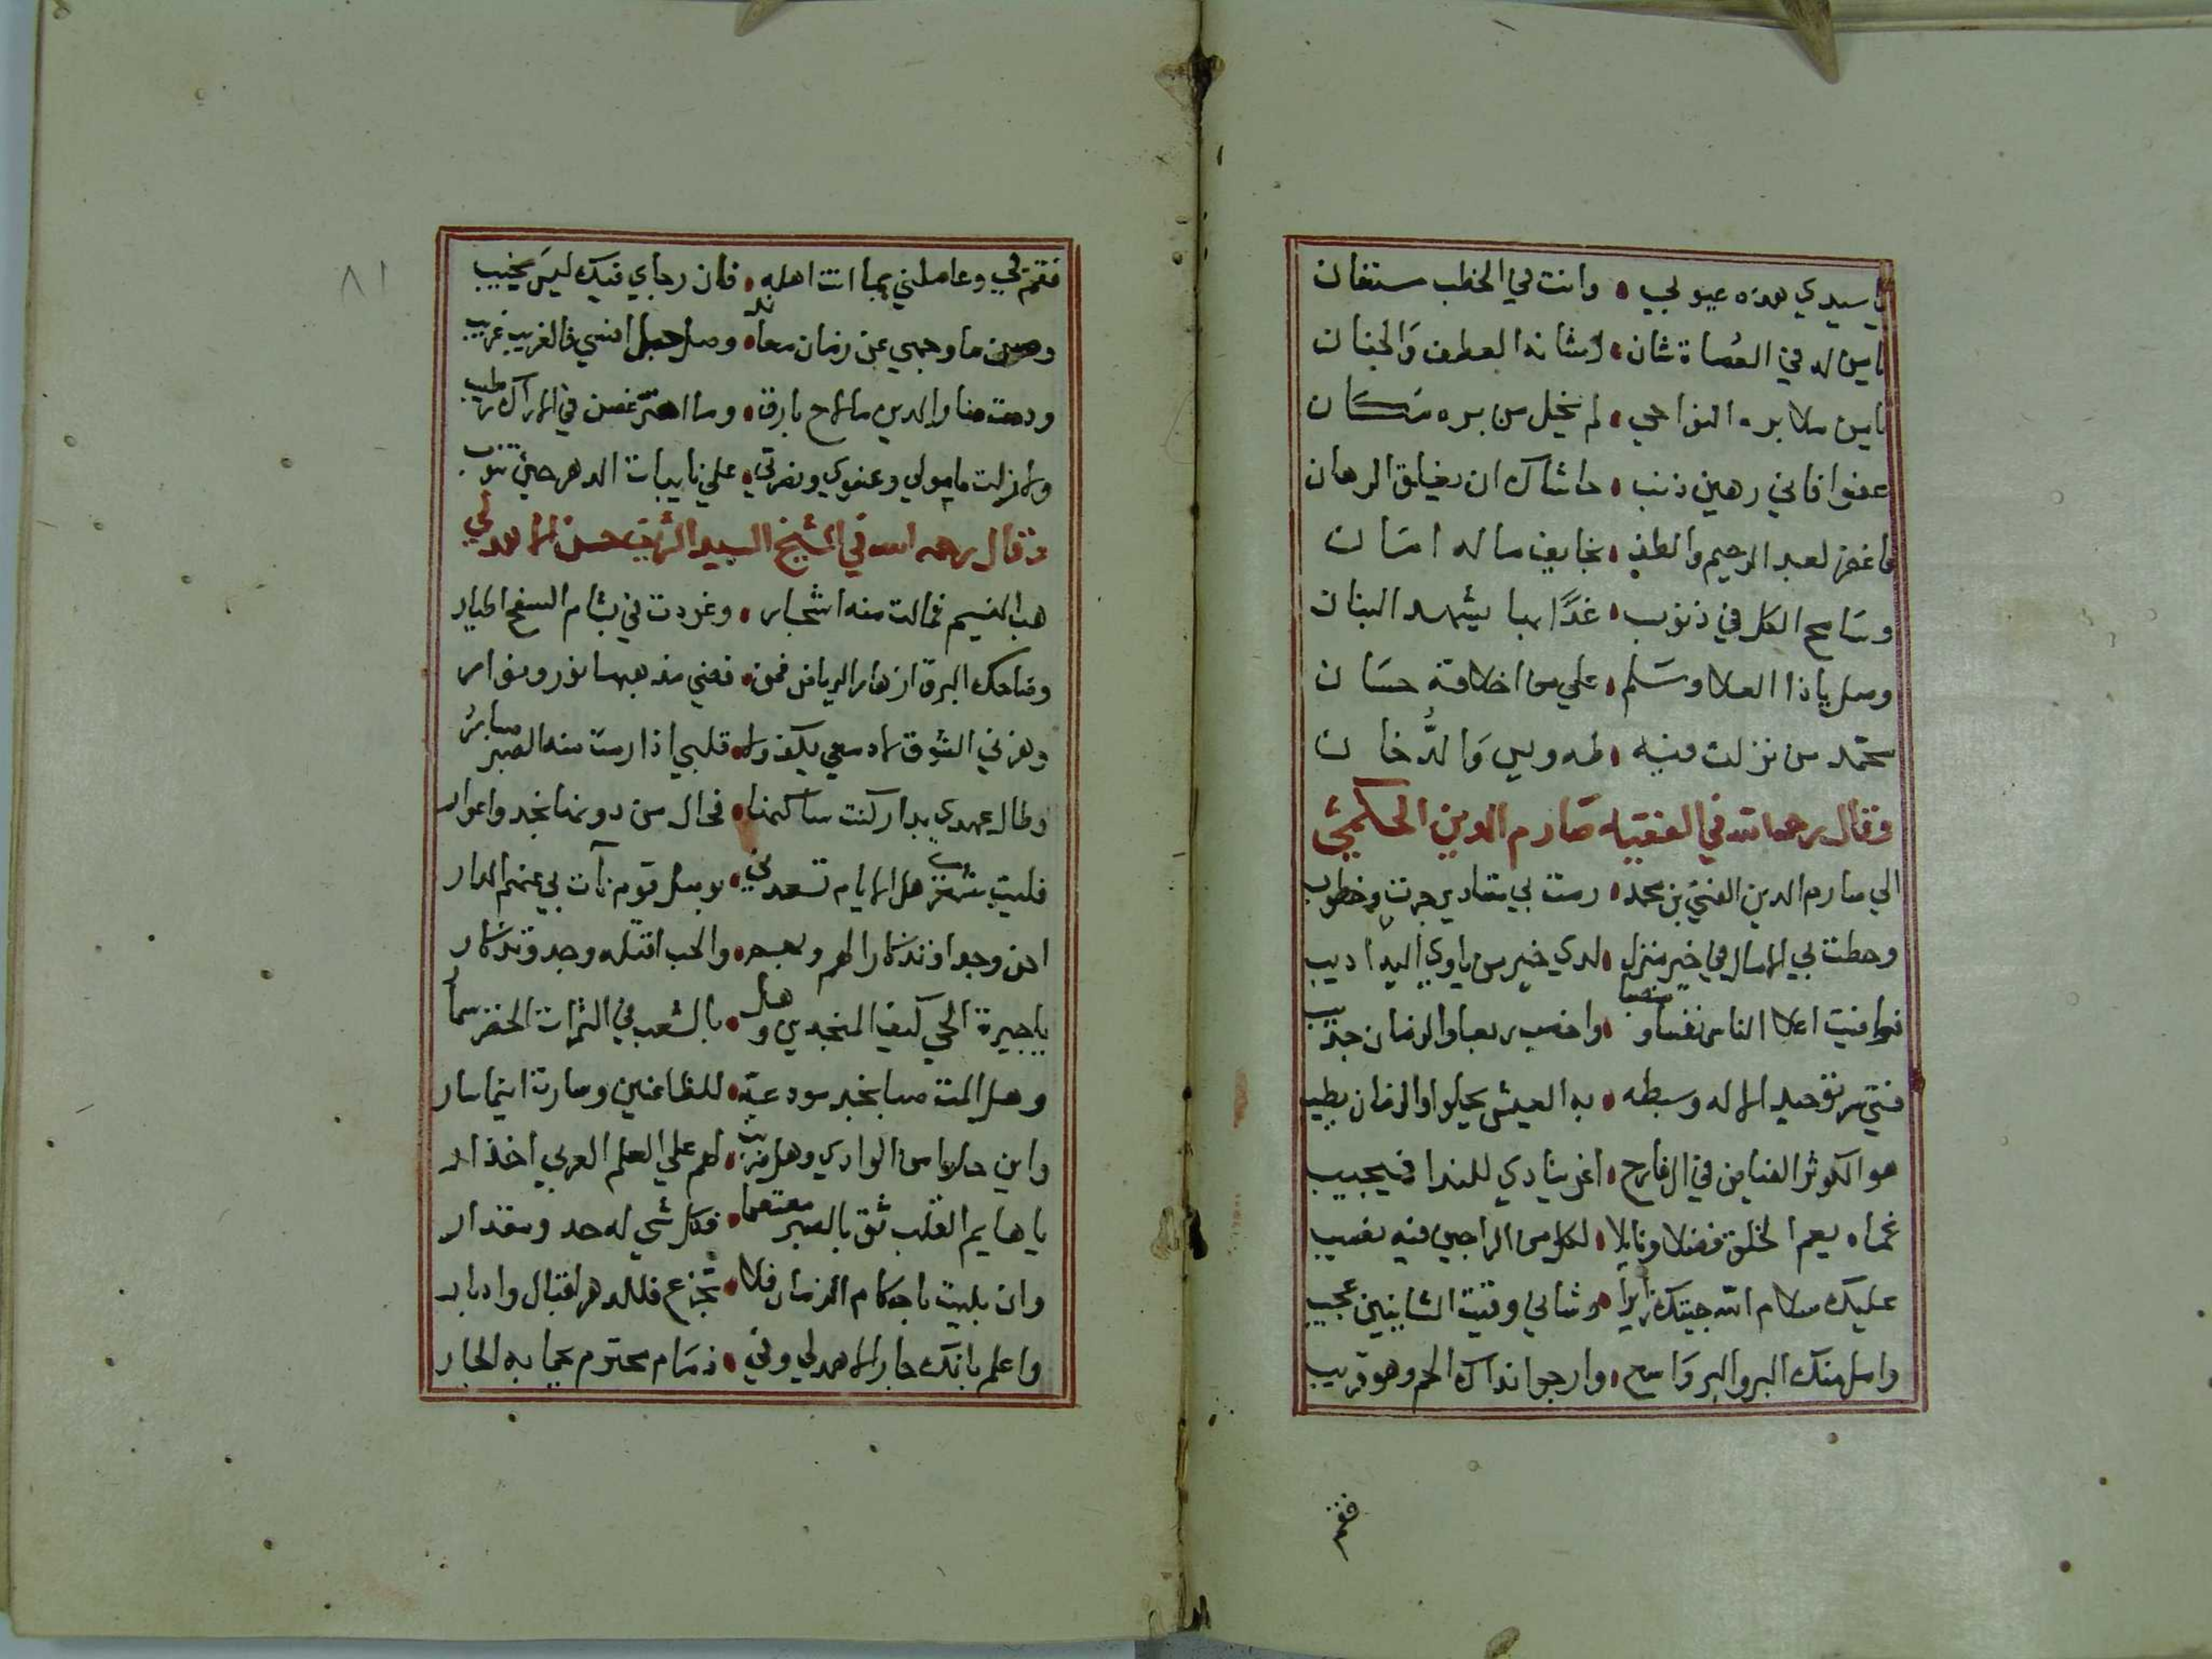 يا سيدي هذه عيوبي • وانت في الخطب مستعان
يا من له في العصاة شان • شانه العطف والحنان
يا من ملا بره النواحي • لم يخل من بره مكان
عفوا فاني رهين ذنب • حاشاك ان يغلق الرهان
فاغفر لعبد الرحيم والطف • بخايف ما له امان
وسامح الكل في ذنوب • غدًا بها يشهد البنان
وصل يا ذا العلا وسلم • علي من اخلاقه حسان
محمد من نزلت فيه • طه ويس والدُّخان
وقال رحمه الله في الفقيه صارم الدين الحكمي
الي صارم الدين الفتي بن محمد • رمت بي مقادير جرت وخطوب
وحطت بي الامال في خير منزل • لدي خير من ياوي اليه اديب
فوافيت اعلا الناس نفسا ومنصبا • واخصب ربعا والزمان جديب
فتي سر توحيد الاله وسبطه • به العيش يحلوا والزمان يطيب
هو الكوثر الفياض في ال فارح • اغر ينادي للندا فيجيب
غماه يعم الخلق فضلا ونايلا • لكل من الراجين فيه نصيب
عليك سلام الله جيتك زايرا • وشاني وقيت الشانيين عجيب
وامل منك البر والبر واسع • وارجوا نداك الجم وهو قريب
فقم
٨١
فقم بي وعاملني بما انت اهله • فان رجاي فيك ليس يخيب
وصن ما وجهي عن زمان معاند • وصل حبل انسي فالغريب غريب
ودمت منار الدين ما لاح بارق • وما اهتز غصن في الاراك رطيب
ولا زلت مامولي وعنوي ونصرتي • علي نايبات الدهر حين تنوب
وقال رحمه الله في الشيخ السيد الشريف حسن الاهدلي
هب النسيم فمالت منه اشجار • وغردت في بشام السفح اطيار
وضاحك البرق ازهار الرياض فمن • فضي مذهبها نور ونوار
وهزني الشوق لا دمعي يكف ولا • قلبي اذا رمت منه الصبر صابر
وطال عهدي بدار كنت ساكنها • فحال من دونها نجد واغوار
فليت شعري هل الايام تسعدني • بوصل قوم نأت بي عنهم الدار
احن وجدا وتذكارا لهم ولهم • والحب اقتله وجد وتذكار
يا جيرة الحي كيف المنجدي وهل • بالشعب في الثمرات الخضر سمار
وهل المت صبا نجد مودعة • للظاعنين وسارت اينما سار
واين حلوا من الوادي وهل ضربت • لهم علي العلم الغربي اخدار
يا هايم القلب ثق بالصبر معتصما • فكل شي له حد ومقدار
وان بليت باحكام الزمان فلا • تجزع فللدهر اقبال وادبار
واعلم بانك جار الاهدلي وفي • ذمام محترم يحما به الجار